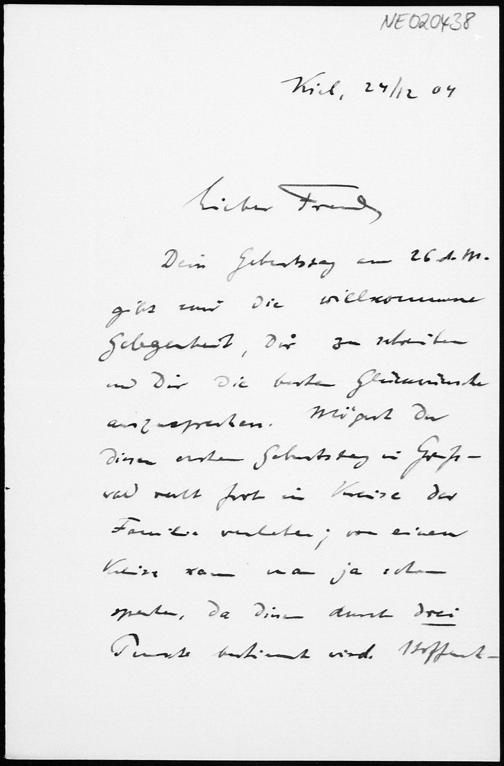 NE020438
Kiel, 24/12 04
Lieber Freund,
Dein Geburtstag am 26 d. M.
gibt mir die willkommene
Gelegenheit, Dir zu schreiben
und Dir die besten Glückwünsche
auszusprechen. Mögest Du
diesen ersten Geburtstag in Greifs-
wald recht froh im Kreise der
Familie verleben; von einem
Kreise kann man ja schon
sprechen, da dieser durch drei
Punkte bestimmt wird. Hoffent-